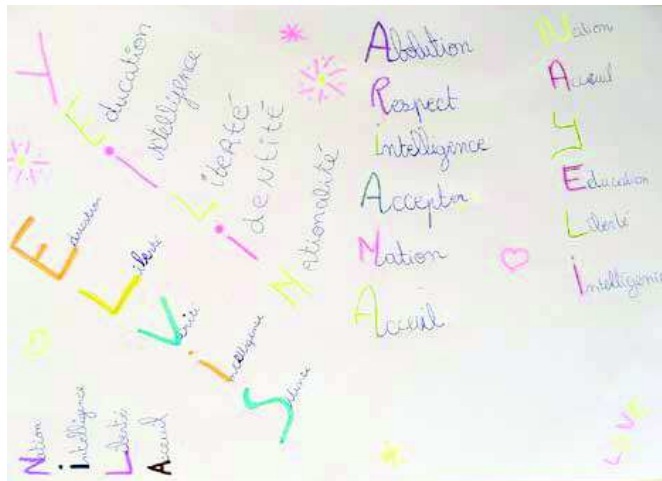 Y
Education
intelligence
Liberté
identité
Nationalité
Education
Liberté
Vérité
Intelligence
Nation
intelligence
Liberté
Acceuil
Abolution
Respect
intelligence
Accepter
Nation
Acceuil
Nation
Acceuil
Y
Education
Liberté
Intelligence
LOVE